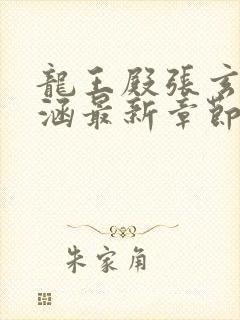 龍王殿張玄
涵最新章節
朱家角